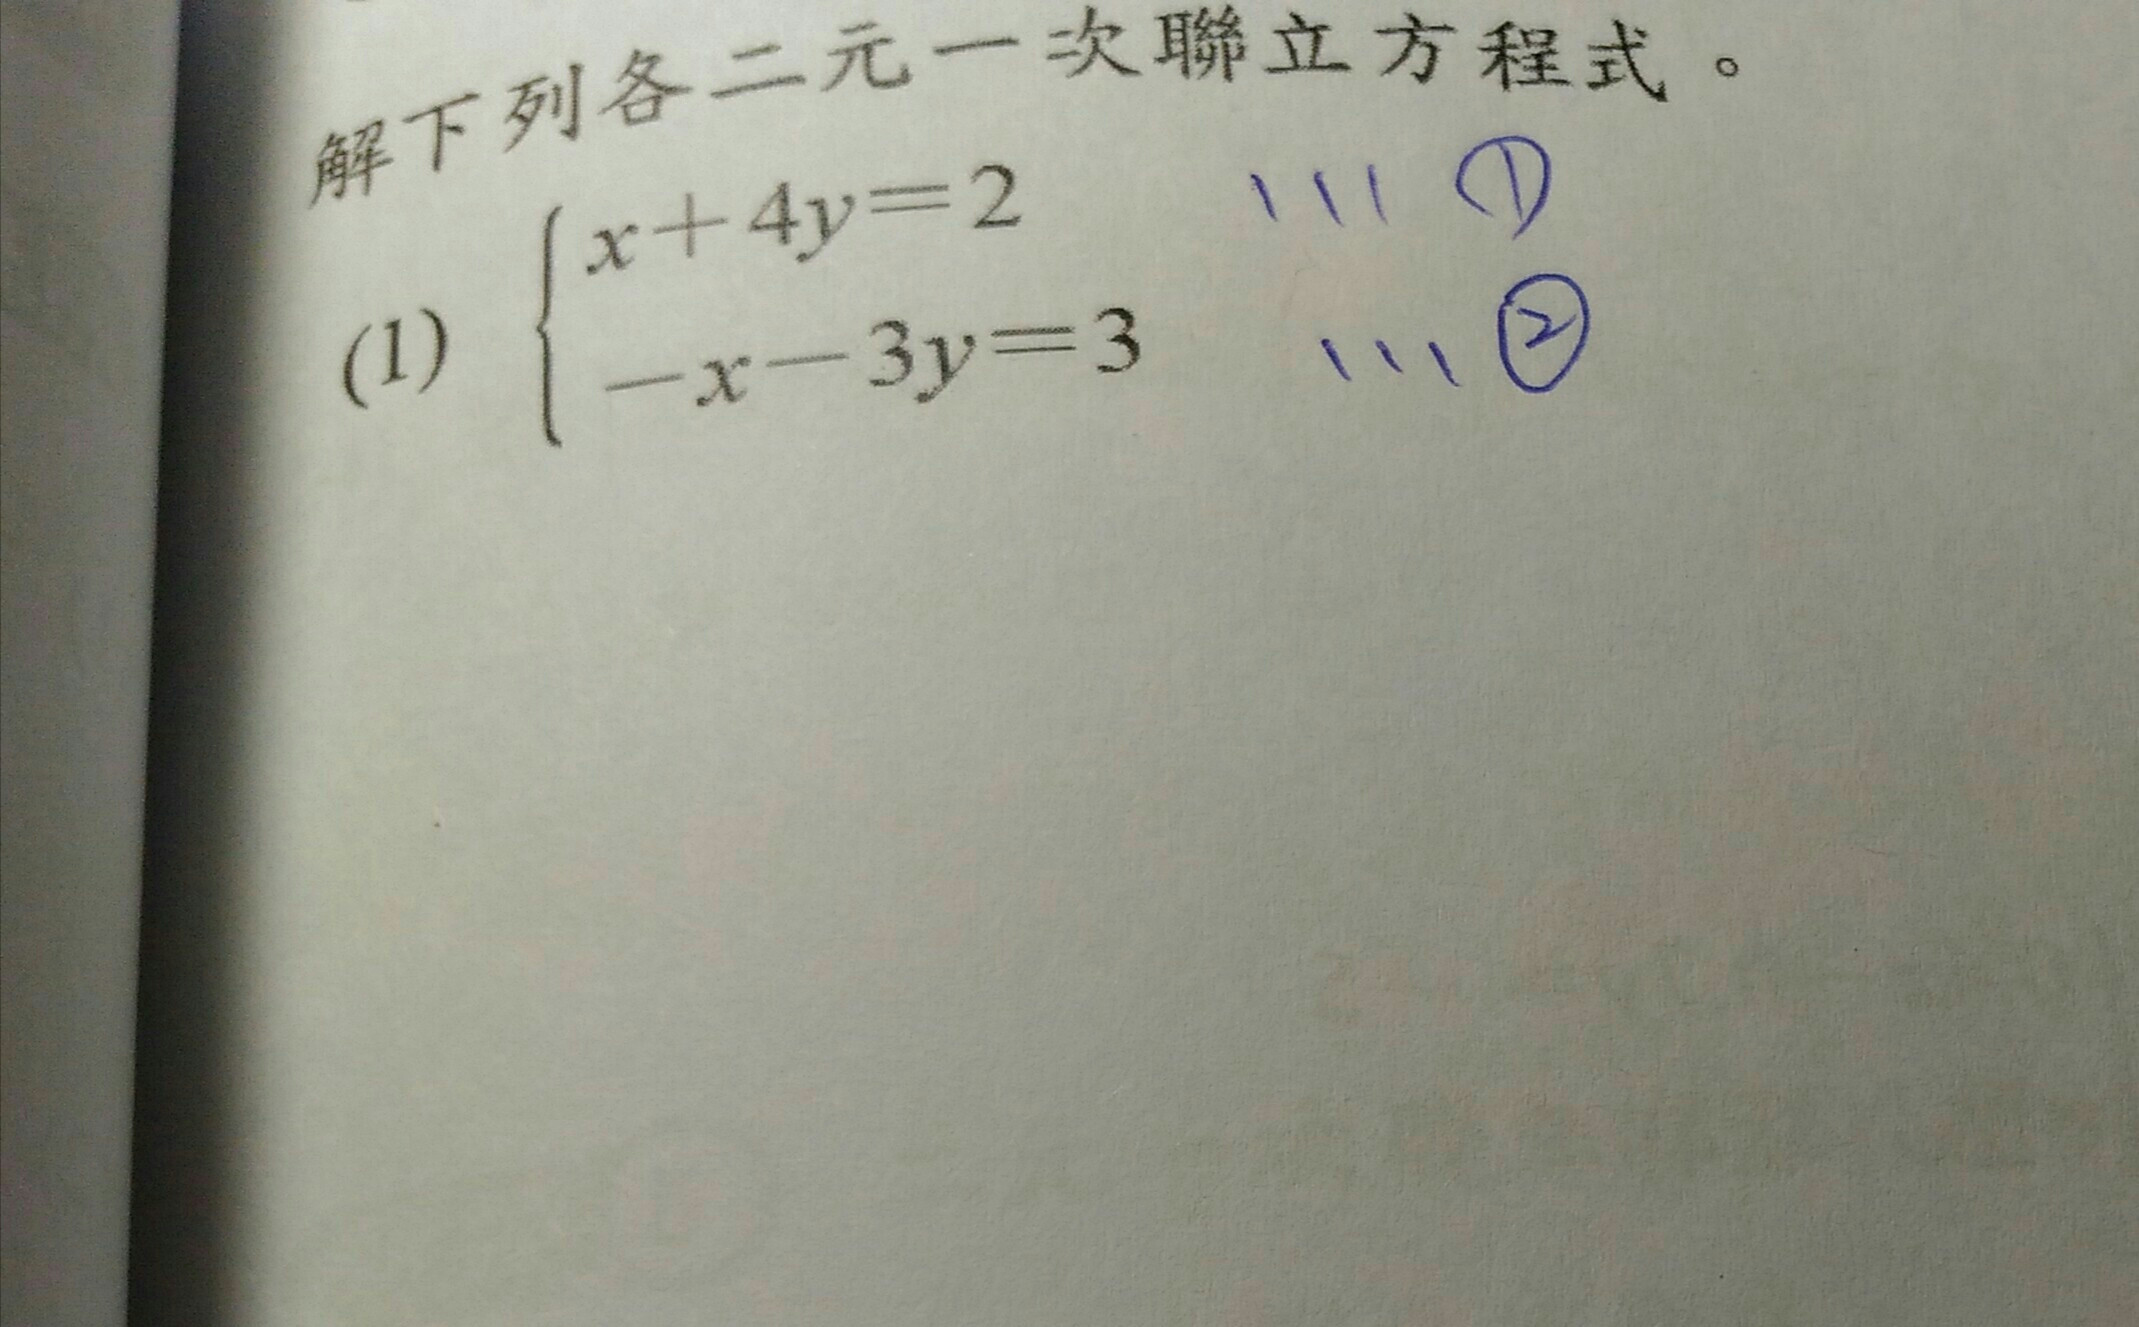 解下列各二元一次聯立方程式。
x+4y=2 ... ①
(1)
-x-3y=3 ... ②